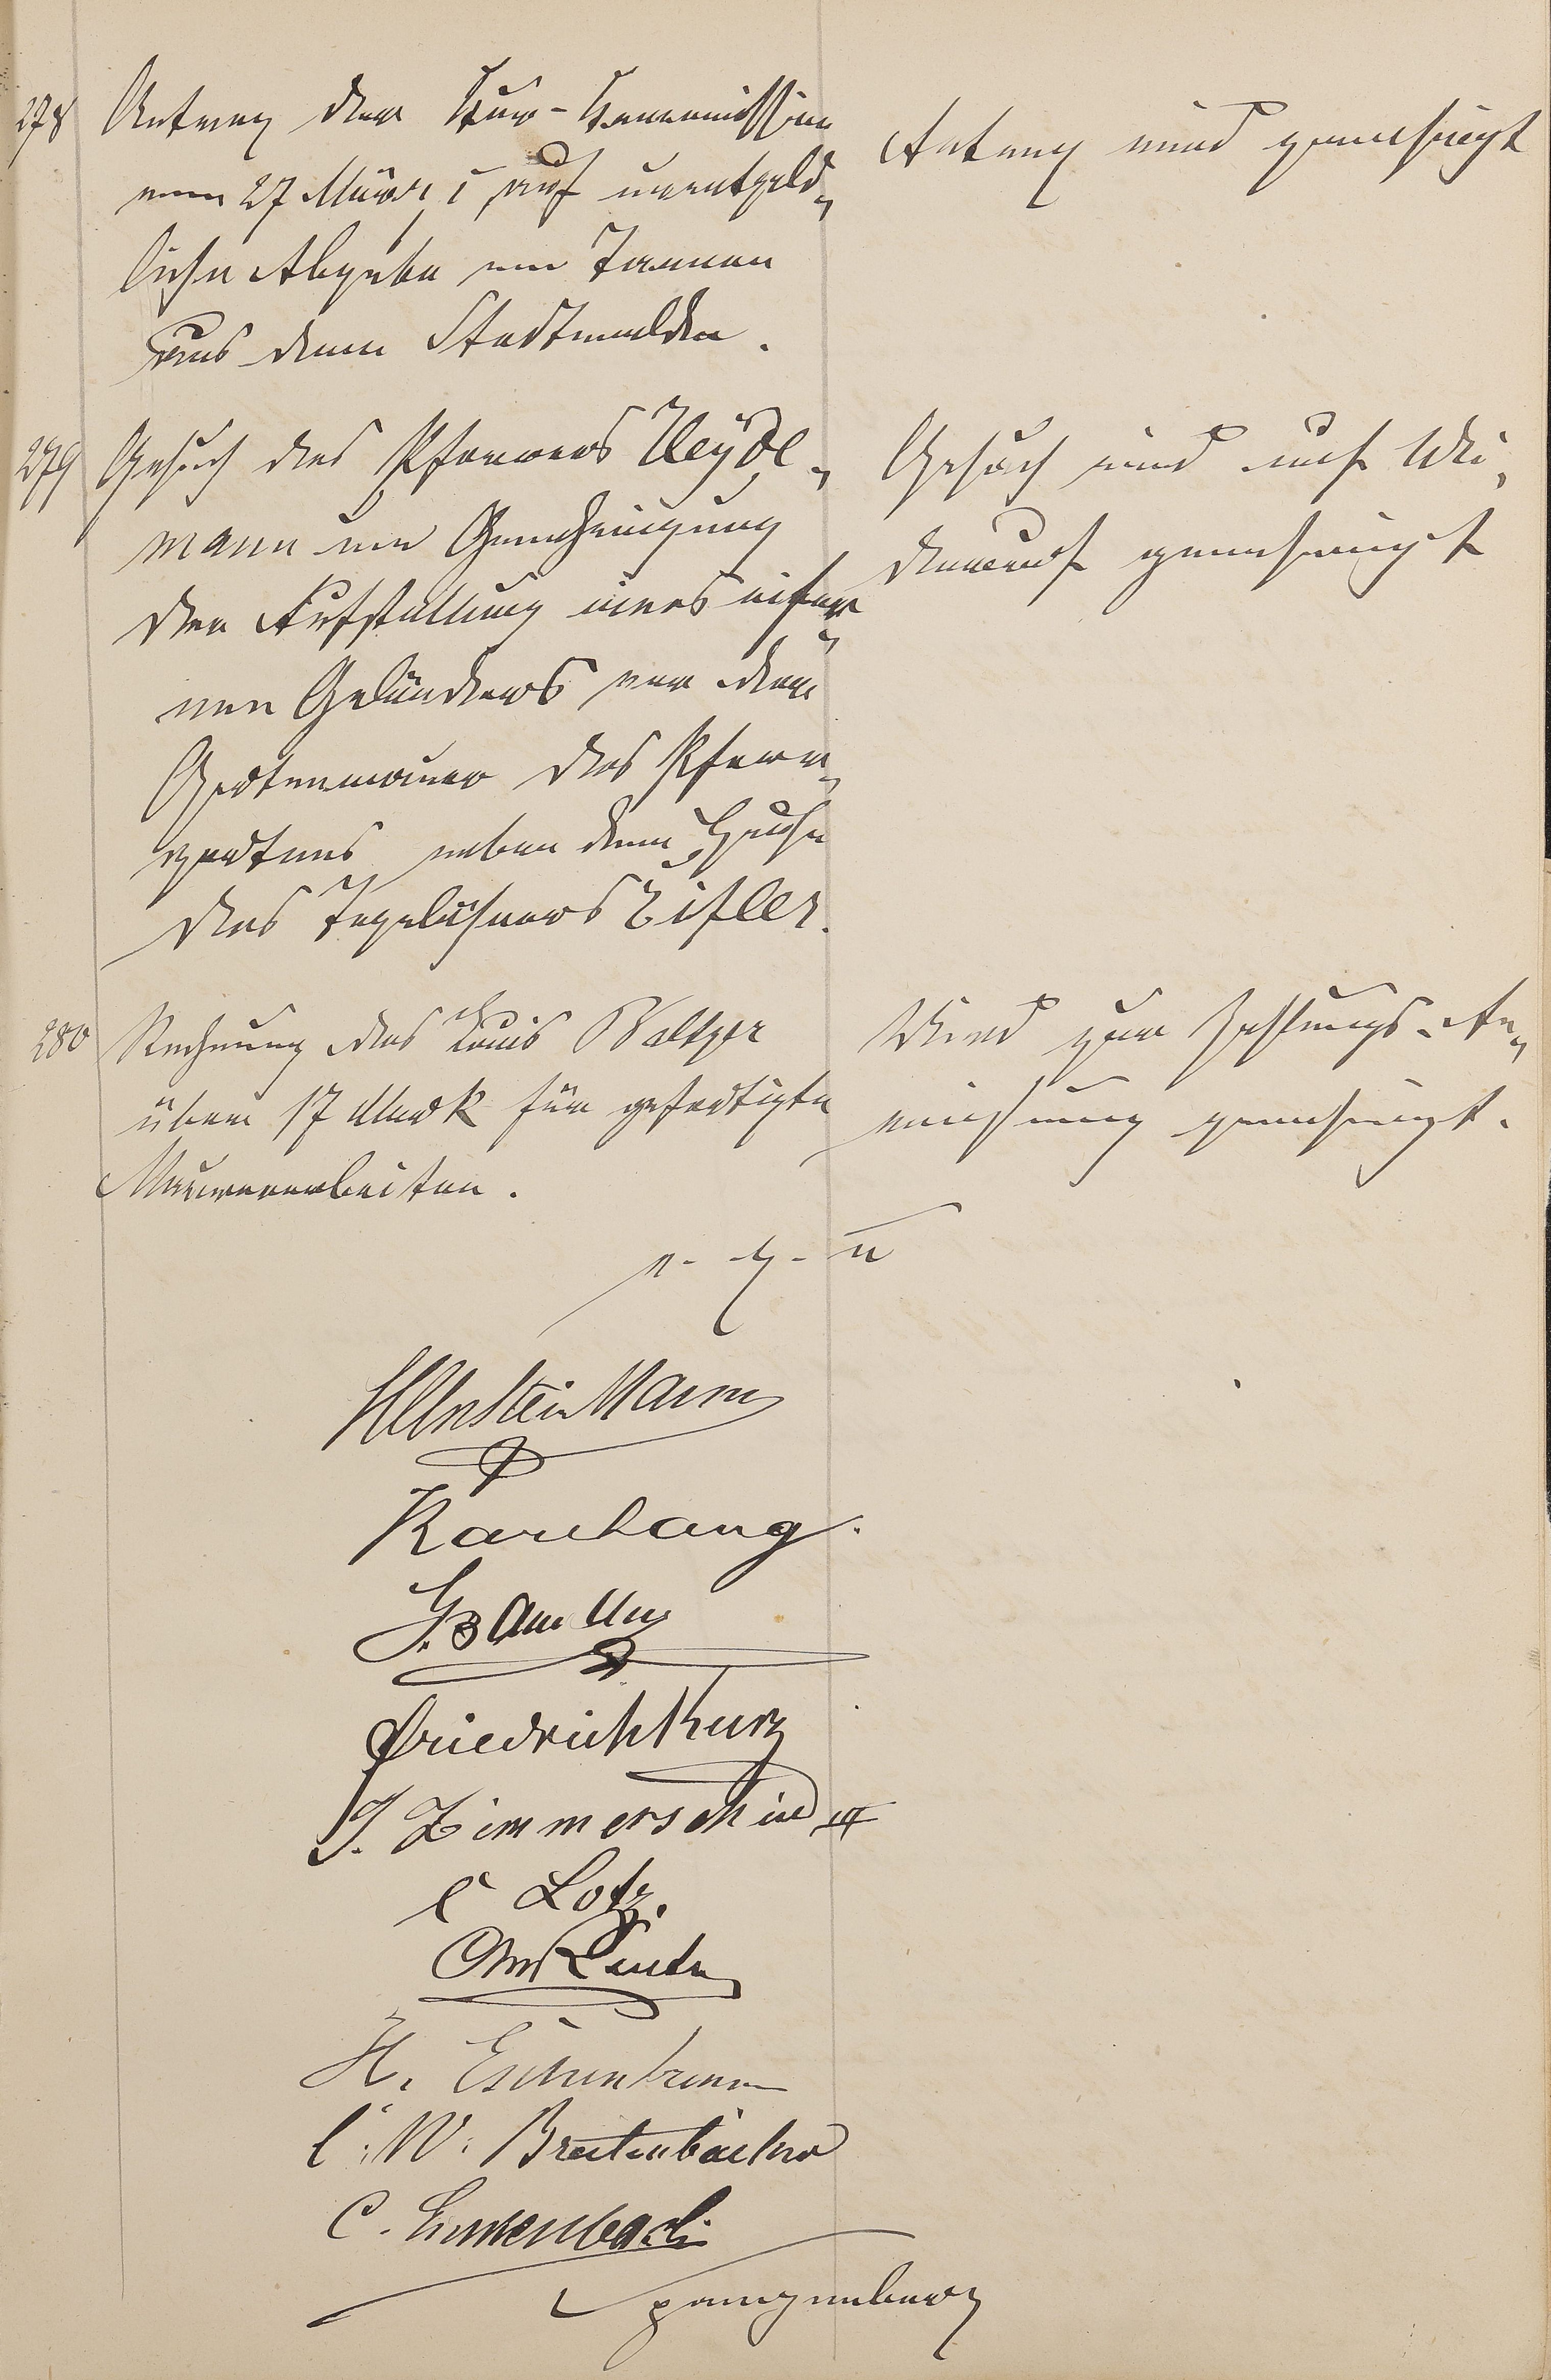 278
Antrag der Kur-Kommission
vom 27 März, auf unentgeld¬
liche Abgabe von Tannen
aus dem Stadtwalde.
Antrag wird genehmigt
279
Gesuch des Pfarrers Heydemann
um Genehmigung
der Aufstellung eines eiser¬
nen Geländers vor der
Gartenmauer des Pfarr¬
gartens neben dem Hause
des Tagelöhners Zifler.
Gesuch wird auf Wi¬
derruf genehmigt
280
Rechnung des Louis Baltzer
über 17 Mark für gefertigte
Maurerarbeiten.
Wird zur Zahlungs-An¬
weisung genehmigt.
v. g. u
Karl Lang.
Friedrich Kurz
J. Zimmerschied III
C Lotz.
H. Eschenbrenner
C. W. Breitenbücher
C. Linkenbach
Spangenberg